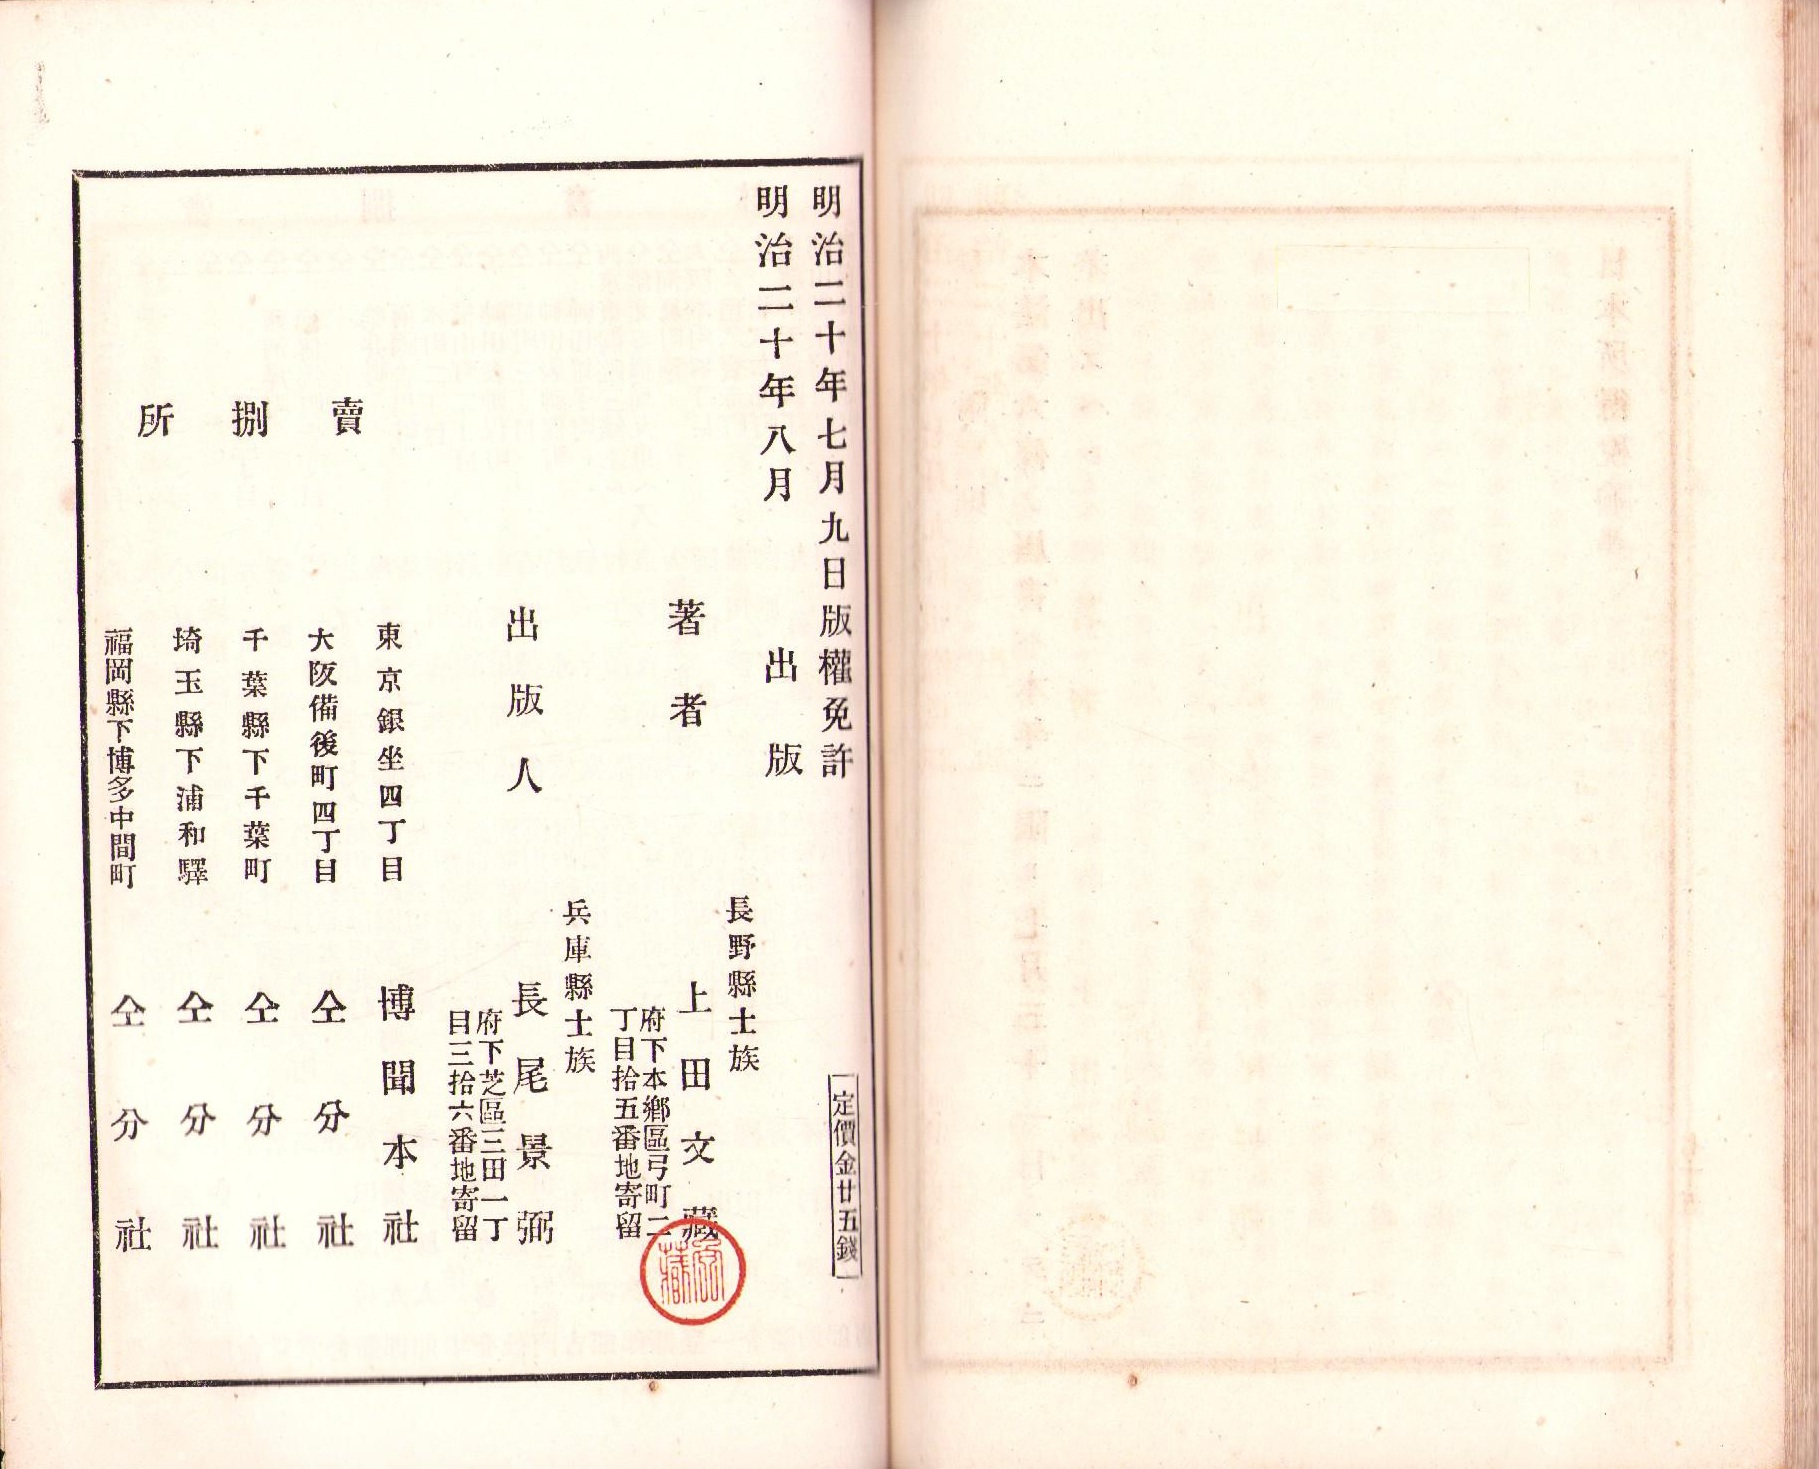 明治二十年七月九日版權免許
定價金廿五錢
明治二十年八月 出版
長野縣士族
著者 上田文藏
府下本鄉區弓町二
丁目拾五番地寄留
兵庫縣士族
出版人 長尾景弼
府下芝區三田一丁
目三拾六番地寄留
賣捌所
東京銀坐四丁目 博聞本社
大阪備後町四丁目 仝分社
千葉縣下千葉町 仝分社
埼玉縣下浦和驛 仝分社
福岡縣下博多中間町 仝分社